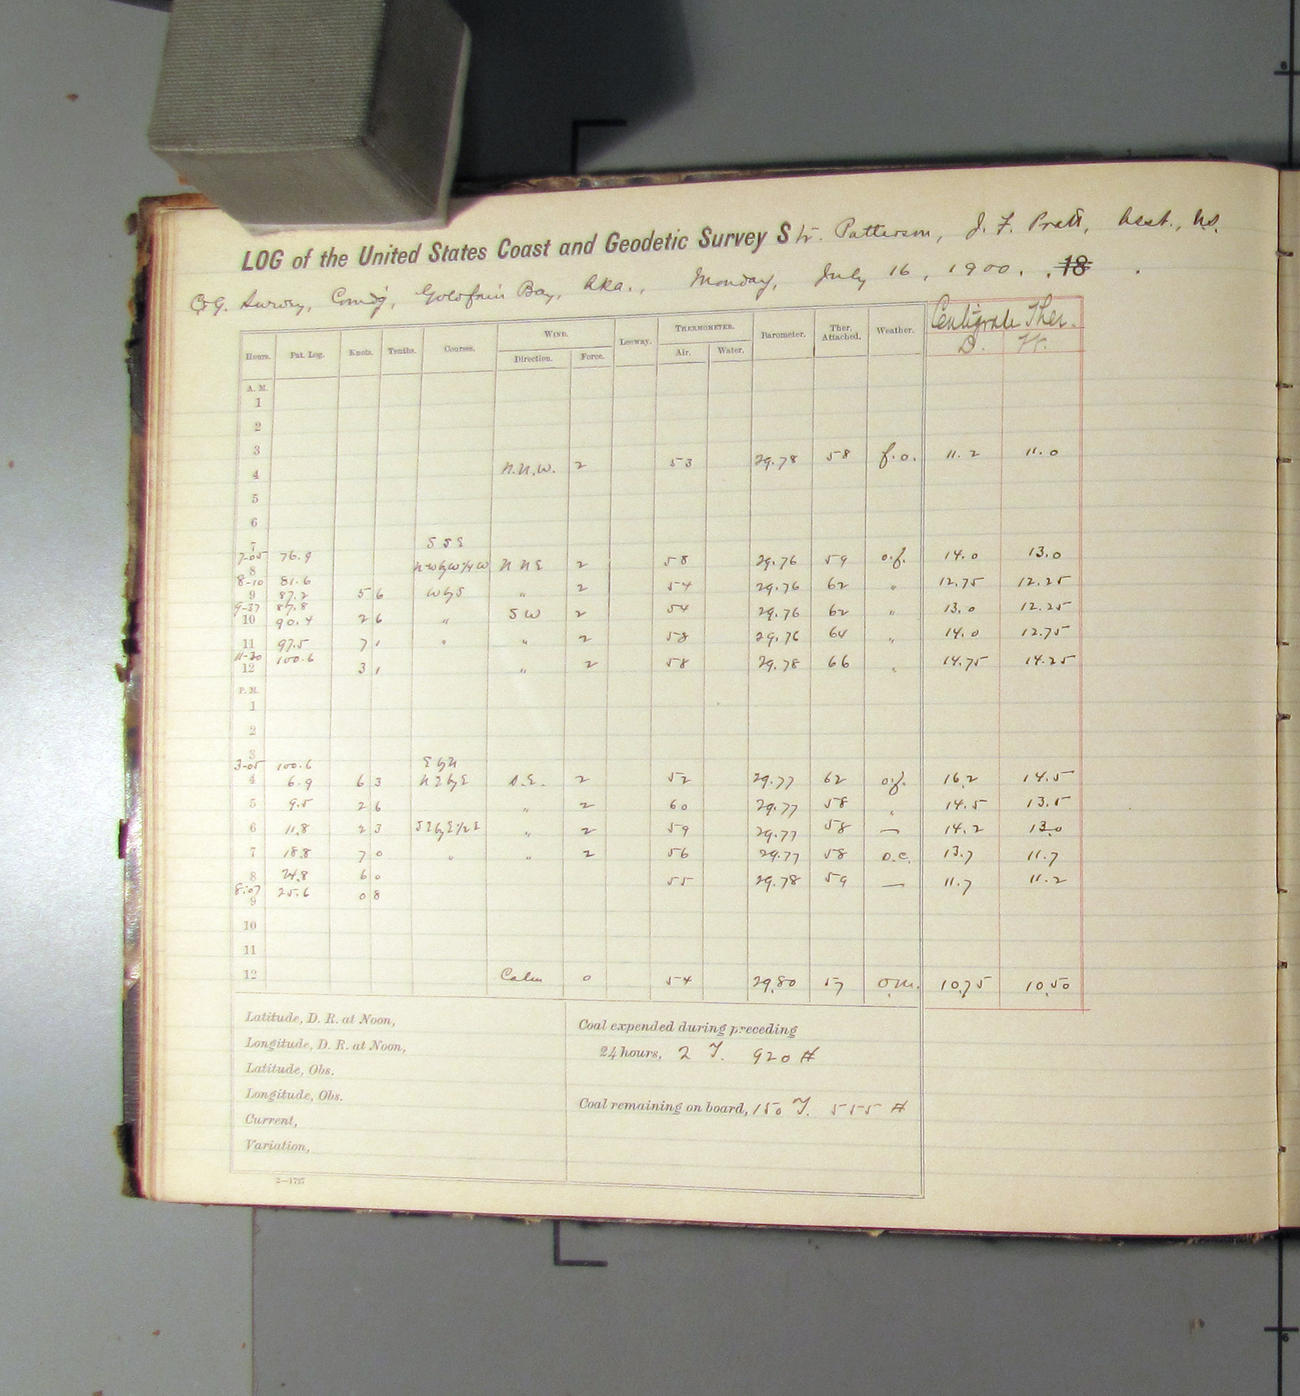 LOG of the United States Coast and Geodetic Survey Str. Patterson, J. F. Pratt, Asst., U.S.
C&G. Survey, Comd'g, Golofnin Bay, Aka., Monday, July 16, 1900. 18
Hours. Pat. Log. Knots. Tenths. Courses. WIND. Leeway. THERMOMETER. Barometer. Ther. Attached. Weather. Centigrade Ther.
Direction. Force. Air. Water. D. W.
A. M.
1
2
3
4 N.N.W. 2 53 29.78 58 f.o. 11.2 11.0
5
6
7 S S E
7-05 76.9
8 NWbyW½W N N E 2 58 29.76 59 o.f. 14.0 13.0
8-10 81.6
9 87.2 5 6 W by S " 2 54 29.76 62 " 12.75 12.25
9-37 87.8
10 90.4 2 6 " S W 2 54 29.76 62 " 13.0 12.25
11 97.5 7 1 " " 2 58 29.76 64 " 14.0 12.75
11-30 100.6
12 3 1 " 2 58 29.78 66 " 14.75 14.25
P. M.
1
2
3
3-05 100.6 E by N
4 6.9 6 3 N E by E S.E. 2 52 29.77 62 o.f. 16.2 14.5
5 9.5 2 6 " 2 60 29.77 58 " 14.5 13.5
6 11.8 2 3 SEbyE½E " 2 59 29.77 58 — 14.2 13.0
7 18.8 7 0 " " 2 56 29.77 58 o.c. 13.7 11.7
8 24.8 6 0 55 29.78 59 — 11.7 11.2
8:07 25.6 0 8
9
10
11
12 Calm 0 54 29.80 57 o.m. 10.75 10.50
Latitude, D. R. at Noon,
Longitude, D. R. at Noon,
Latitude, Obs.
Longitude, Obs.
Current,
Variation,
Coal expended during preceding
24 hours, 2 T. 920 #
Coal remaining on board, 150 T. 555 #
2—1727